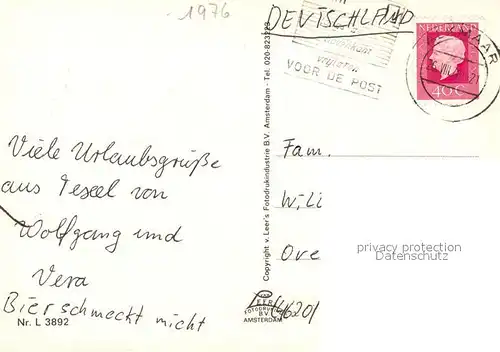 1976
DEUTSCHLAND
NEDERLAND
40 c
VOOR DE POST
Viele Urlaubsgrüße
aus Texel von
Wolfgang und
Vera
Bier schmeckt nicht
Nr. L 3892
Copyright v. Leer's Fotodrukindustrie B.V. Amsterdam - Tel. 020-823223
VAN
LEER
FOTODRUK
B.V.
AMSTERDAM
Fam.
Wili
Ove
privacy protection
Datenschutz